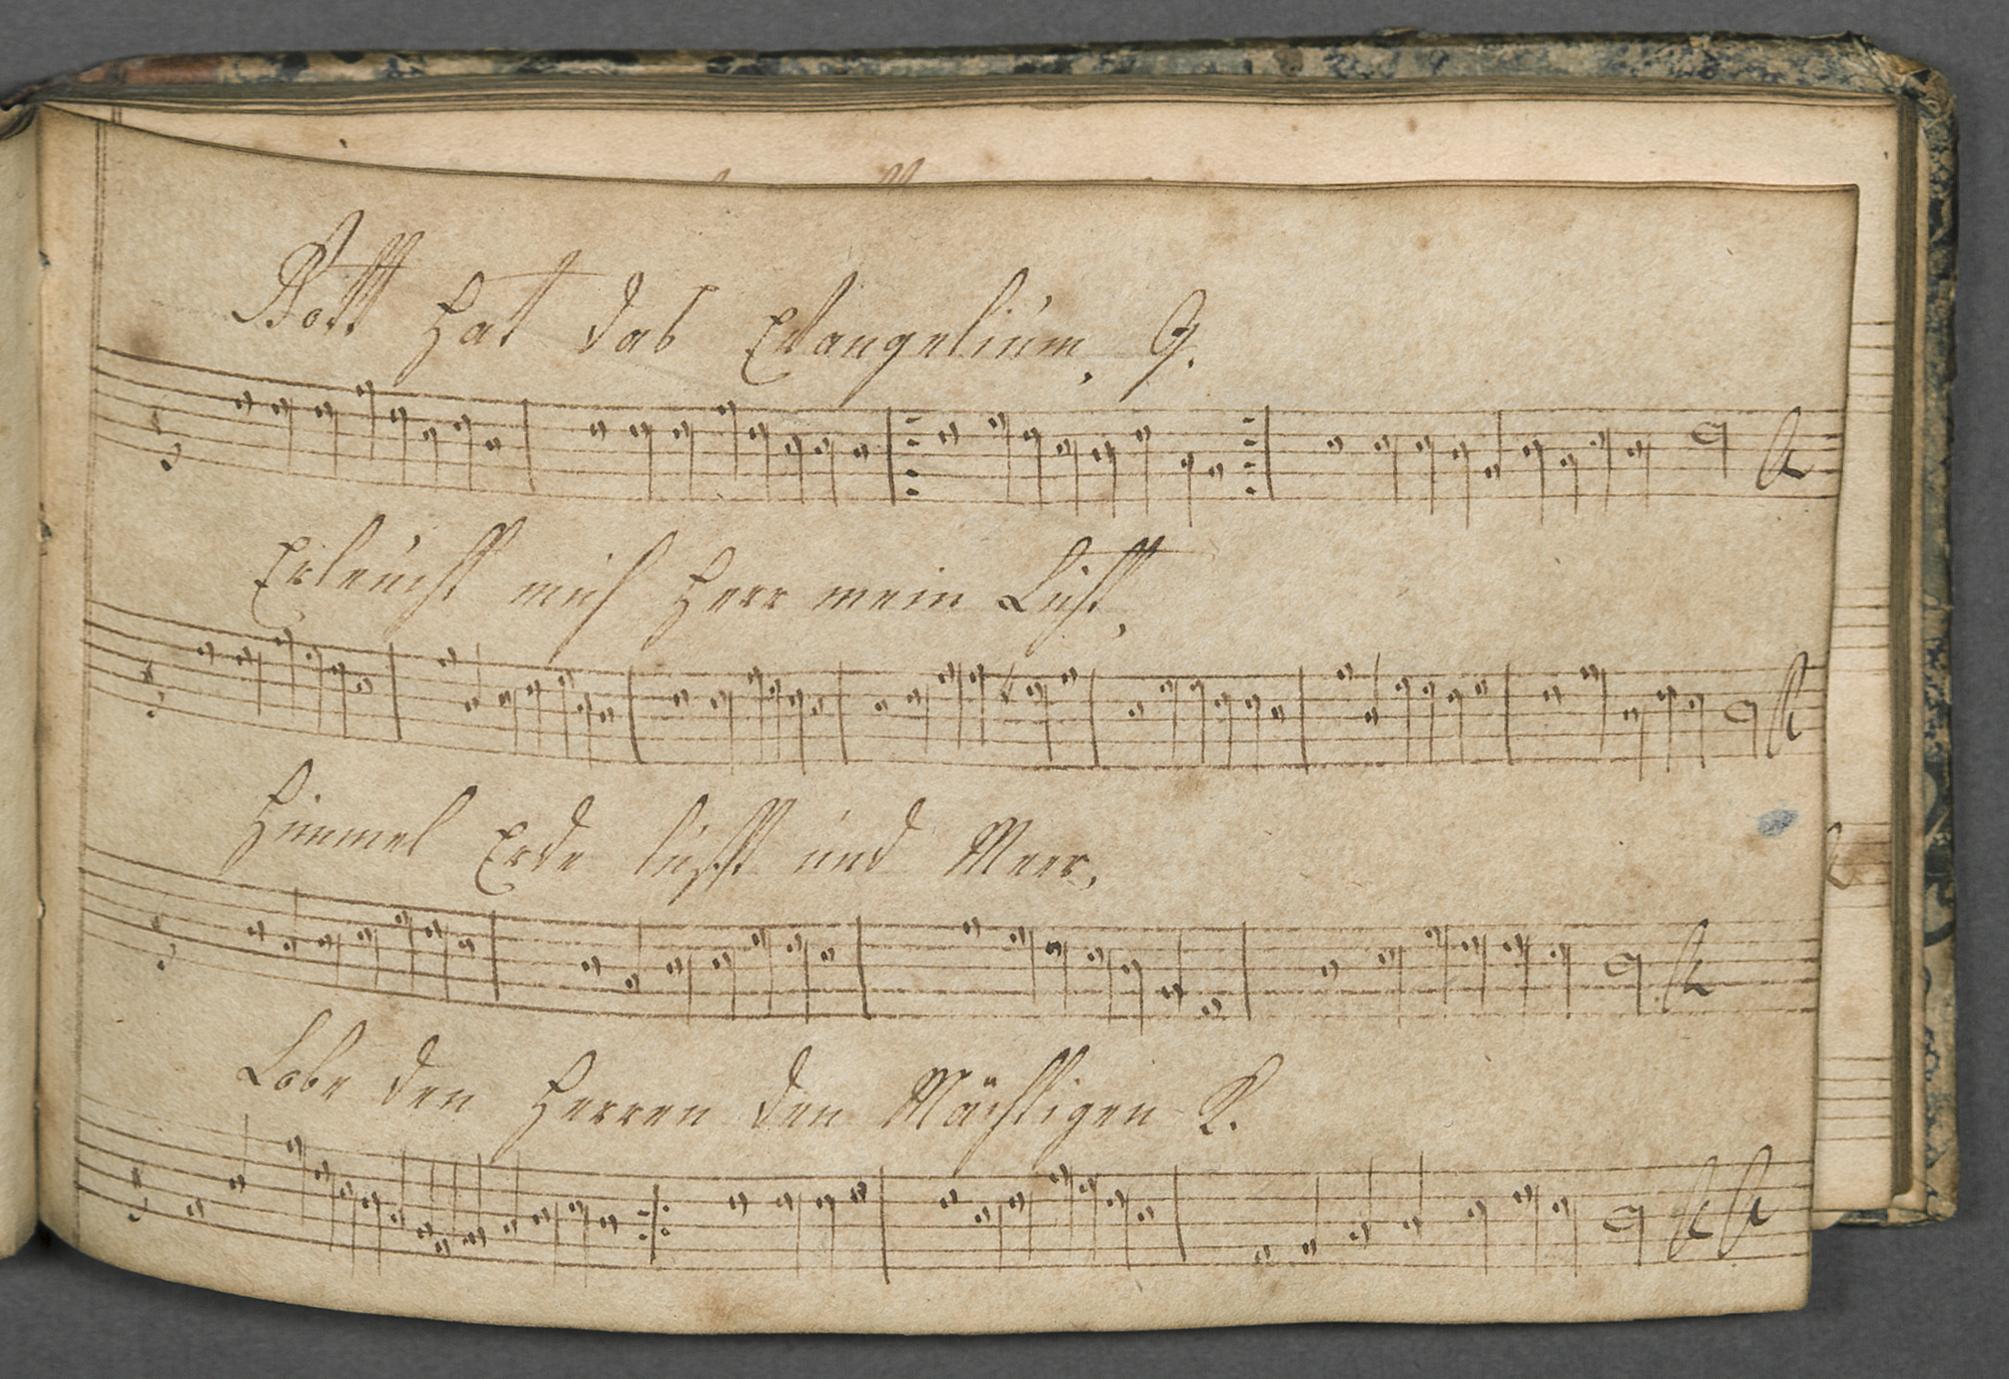 Gott hat das Evangelium, G.
Erleücht mich Herr mein Licht,
Himmel Erde lufft und Meer,
Lobe den Herren den Mächtigen K.